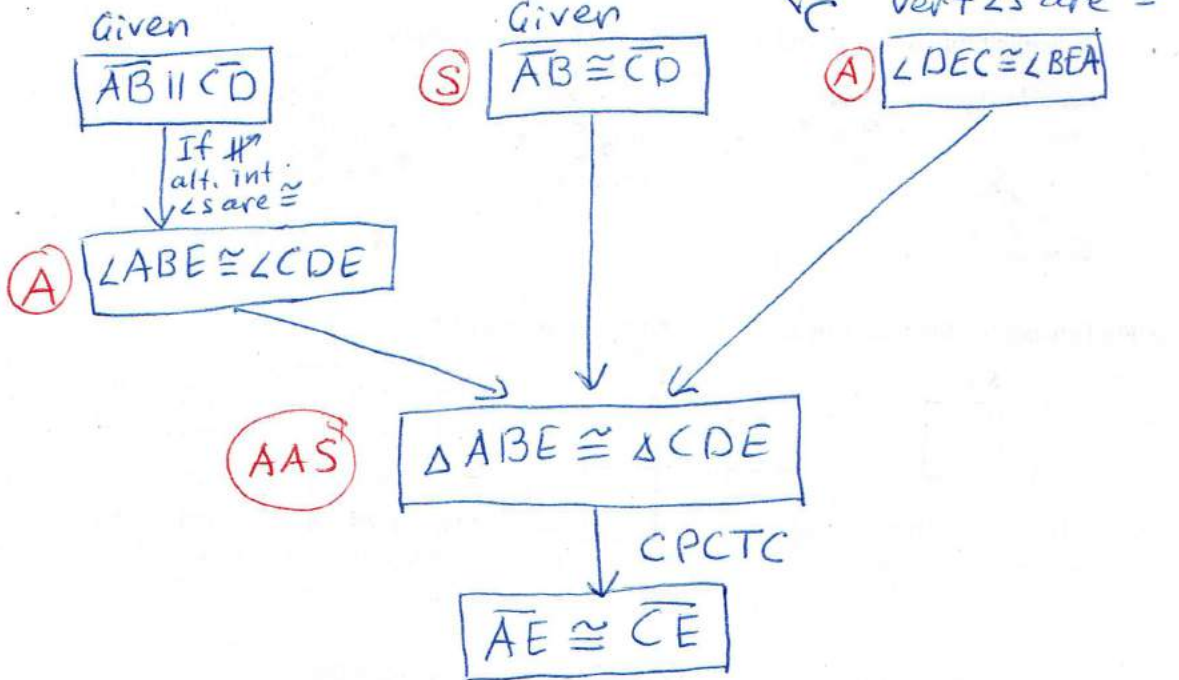 Given
AB || CD
If ||
alt. int.
∠s are ≅
A
∠ABE ≅ ∠CDE
Given
S
AB ≅ CD
C
vert ∠s are ≅
A
∠DEC ≅ ∠BEA
AAS
△ABE ≅ △CDE
CPCTC
AE ≅ CE